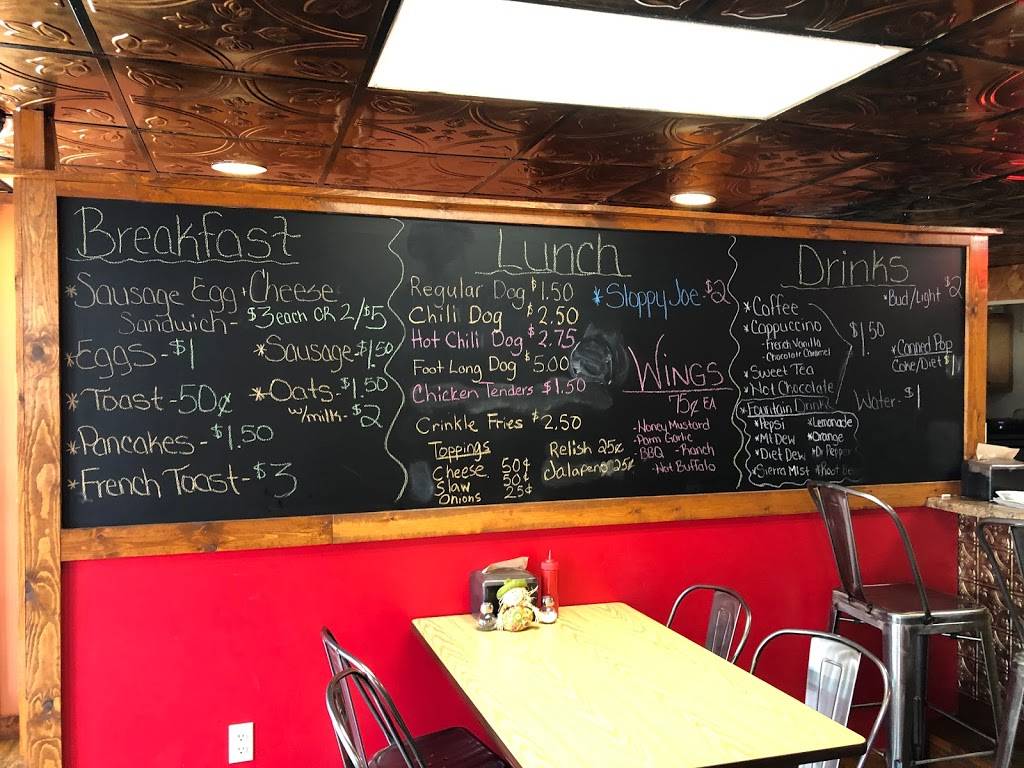 Breakfast
*Sausage Egg + Cheese
Sandwich- $3 each OR 2/$5
*Eggs-$1
*Sausage-$1.50
*Toast-50¢
*Oats-$1.50
w/milk-$2
*Pancakes-$1.50
*French Toast-$3
Lunch
Regular Dog $1.50
Chili Dog $2.50
Hot Chili Dog $2.75
Foot Long Dog $5.00
Chicken Tenders $1.50
Crinkle Fries $2.50
Toppings
Cheese 50¢
Slaw 50¢
Onions 25¢
Relish 25¢
Jalapeno 25¢
*Sloppy Joe-$2
WINGS
75¢ EA
-Honey Mustard
-Parm Garlic
-BBQ -Ranch
-Hot Buffalo
Drinks
*Coffee
*Cappuccino
-French Vanilla
-Chocolate Caramel
*Sweet Tea
*Hot Chocolate
$1.50
*Fountain Drinks
*Pepsi *Lemonade
*Mt Dew *Orange
*Diet Dew *Dr Pepper
*Sierra Mist *Root Be
*Bud/Light $2
*Canned Pop
Coke/Diet $1
Water-$1